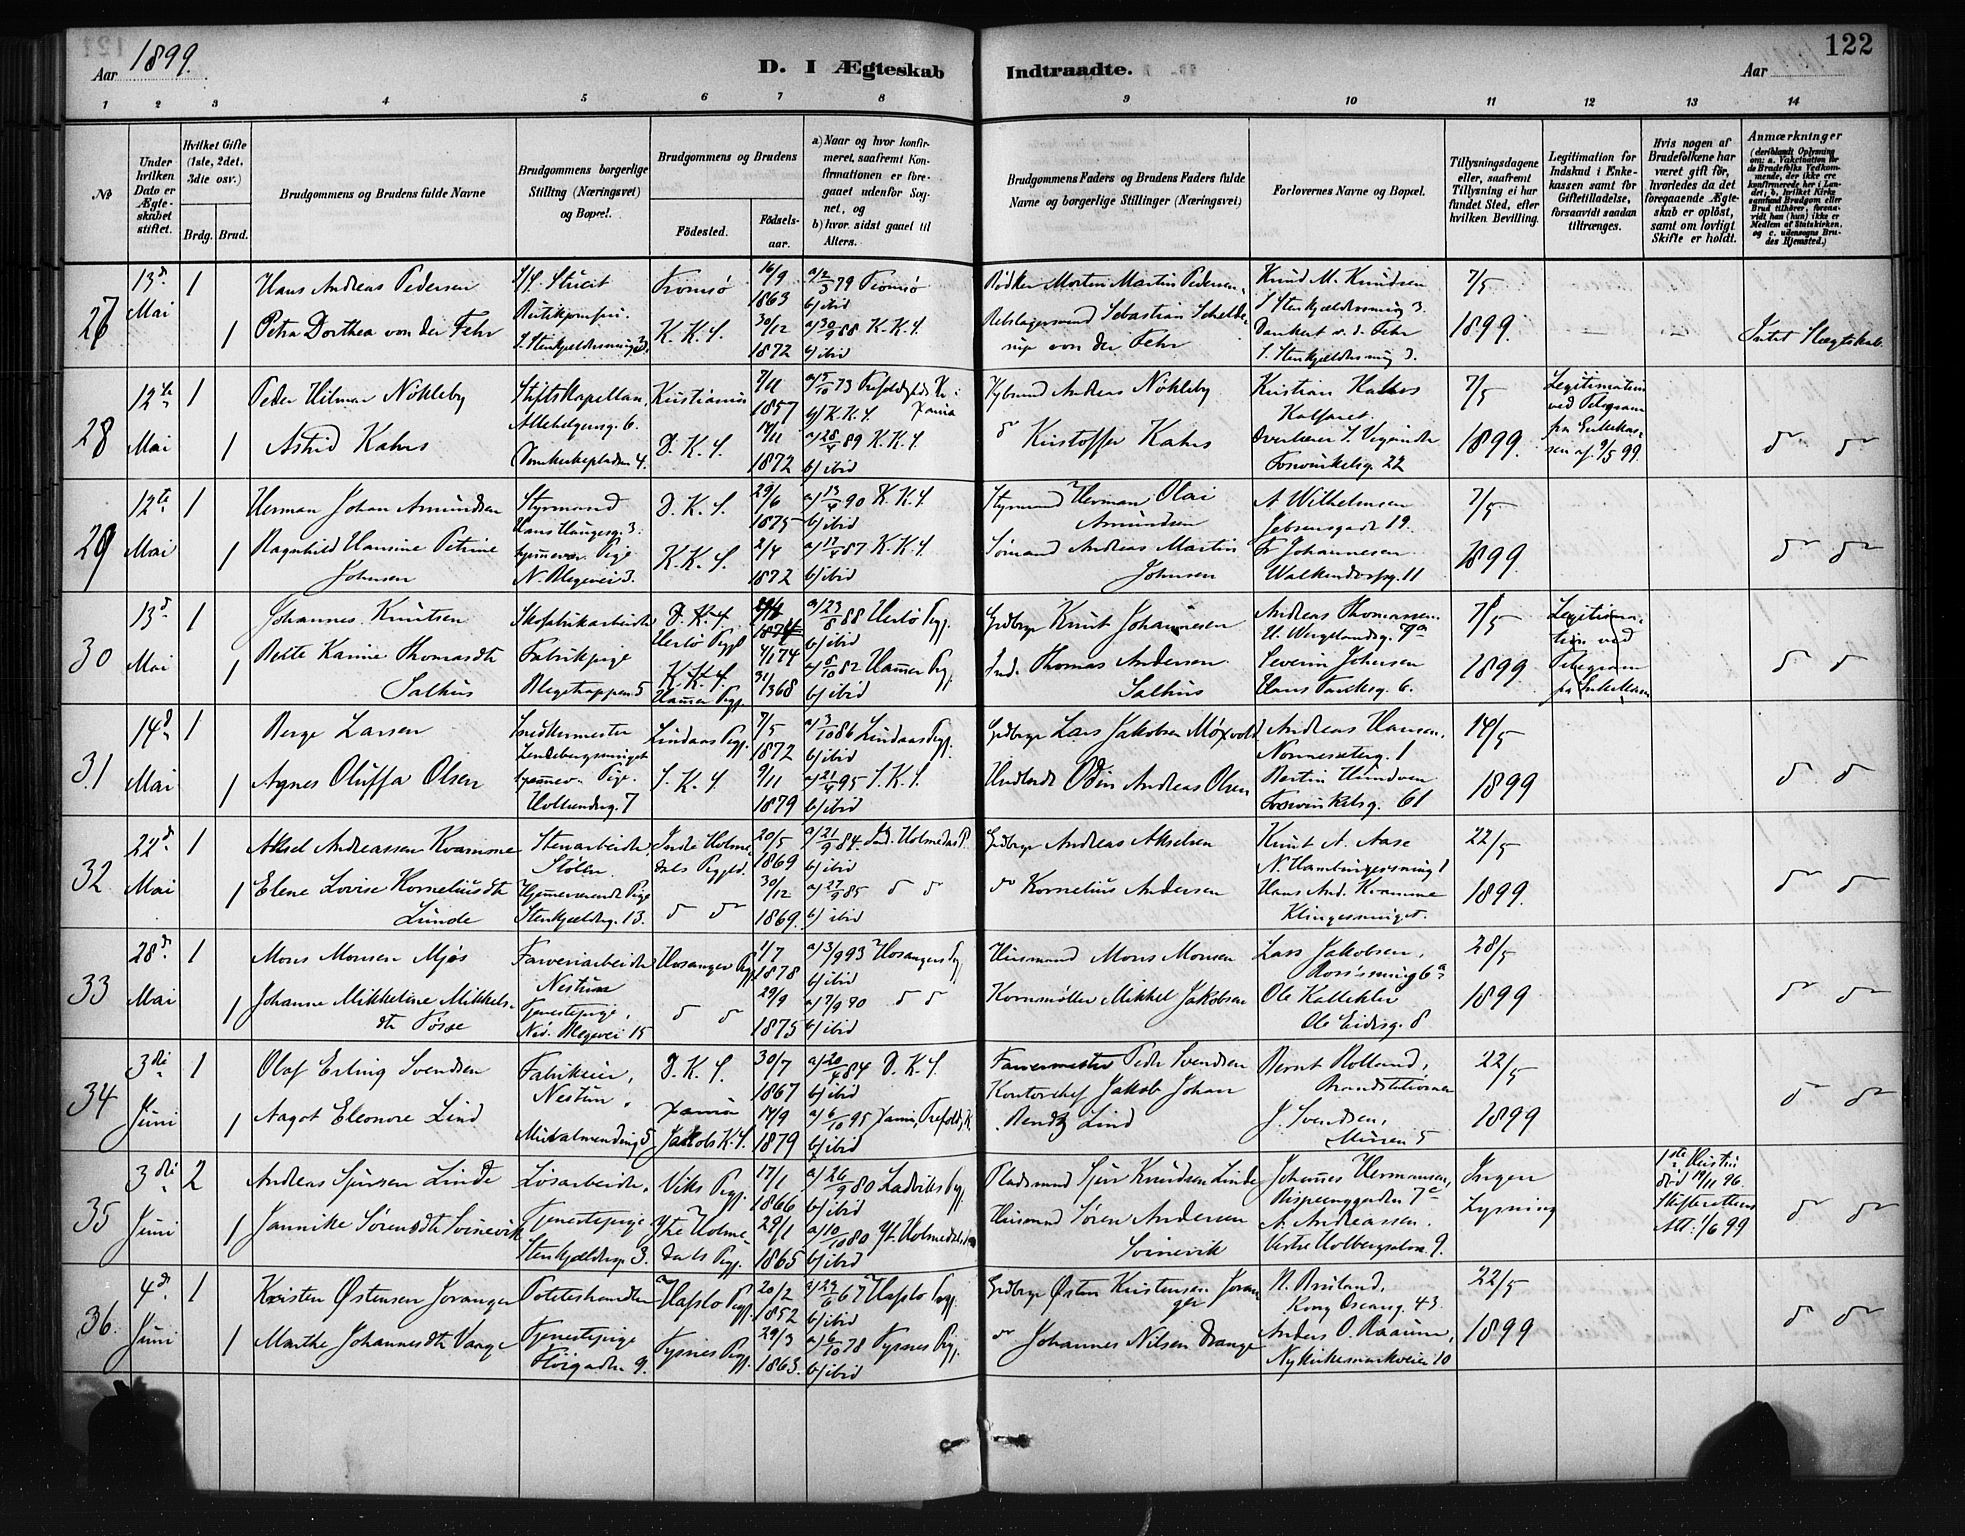 Aar 1899.
D. I Ægteskab
Indtraadte.
Aar
122
1 2 3 4 5 6 7 8 9 10 11 12 13 14
No
Under hvilken Dato er Ægteskabet stiftet.
Hvilket Gifte (1ste, 2det, 3die osv.)
Brdg. Brud.
Brudgommens og Brudens fulde Navne
Brudgommens borgerlige Stilling (Næringsvei) og Bopæl.
Brudgommens og Brudens
Födested. Födselsaar.
a) Naar og hvor konfirmeret, saafremt Konfirmationen er foregaaet udenfor Sognet, og
b) hvor sidst gaaet til Alters.
Brudgommens Faders og Brudens Faders fulde Navne og borgerlige Stillinger (Næringsvei)
Forlovernes Navne og Bopæl.
Tillysningsdagene eller, saafremt Tillysning ei har fundet Sted, efter hvilken Bevilling.
Legitimation for Indskud i Enkekassen samt for Giftetilladelse, forsaavidt saadan tiltrænges.
Hvis nogen af Brudefolkene har været gift før, hvorledes da det foregaaende Ægteskab er oplöst, samt om lovligt Skifte er holdt.
Anmærkninger (deriblandt Oplysning om: a. Vakcination for de Brudefolks Vedkommende, der ikke ere konfirmerede her i Landet; b. hvilket Kirkesamfund Brudgom eller Brud tilhører, forsaavidt han (hun) ikke er Medlem of Statskirken, og c. udensogns Brudes Hjemsted.)
27
13d Mai
1
Hans Andreas Pedersen
Tromsø
16/9 1863
a) 2/3 79 Tromsø
b) ibid
Bødker Morten Martin Pedersen
Knud M. Knudsen
S. Stenkjeldersmug 3.
7/5 1899.
1
Petra Dorthea von der Fehr
S. Stenkjeldersmug 3.
K. K. S.
30/12 1872
a) 30/9 88 K. K. S.
b) ibid
Rebslagersvend Sebastian Schelderup von der Fehr
Dankert v. d. Fehr
S. Stenkjeldersmug 3.
Intet Slægtskab.
28
12te Mai
1
Peder Hilmar Nökleby
Stiftskapellan,
Allehelgensg. 6.
Kristiania
7/11 1857
a) 5/10 73 Trefoldighds K. Xania
b) K. K. S.
Andreas Nökleby
Kristian Kahrs
Kalfaret.
7/5 1899.
Legitimation ved Telegram fra Enkekassen af 9/5 99.
1
Astrid Kahrs
Domkirkepladsen 4.
D. K. S.
17/11 1872
a) 28/4 89 K. K. S.
b) ibid
do Kristoffer Kahrs
Overlærer S. Vigninde
Fosvinkelsg. 22
do do
29
12te Mai
1
Herman Johan Amundsen
Styrmand
Hans Haugesg. 3.
D. K. S.
29/6 1875
a) 13/4 90 K. K. S.
b) ibid
Styrmand Herman Olai Amundsen
A. Wilhelmsen
Jebsensgade 19.
7/5 1899.
1
Ragnhild Hansine Petrine Johnsen
hjemmev. Pige
N. Blegevei 3.
K. K. S.
2/4 1872
a) 17/4 87 K. K. S.
b) ibid
Sömand Andreas Martin Johnsen
Fr. Johannesen
Walkendorfsg. 11
do do
30
13d Mai
1
Johannes Knutsen
Skofabrikarbeider
D. K. S.
Herlö Pgjl
1874
4/1 74
a) 23/8 88 Herlö Pgj.
b) ibid
Grdbrgr Knut Johannesen
Andreas Thomassen
H. Wergelandsg. 7a
7/5 1899
Legitimation ved Telegram fra Enkekassen
1
Berte Karine Thomasdtr Salhus
Fabrikpige
Blegetrappen 5
K. K. S.
Hamer Pgj.
31/3 68
a) 8/10 82 Hamer Pgj.
b) ibid
Ind. Thomas Andersen Salhus
Severin Johnsen
Hans Tanksg. 6.
do do
31
14d Mai
1
Berge Larsen
Snedkermester
Lindaas Pgj.
7/5 1872
a) 3/10 86 Lindaas Pgj.
b) ibid
Grdbrgr Lars Jakobsen Møxvold
Andreas Hansen,
Nonnesæterg. 1
14/5 1899
1
Agnes Oluffa Olsen
hjemmev. Pige.
Holbendsg. 7
S. K. S.
9/11 1879
a) 21/4 95 S. K. S.
b) ibid
Odin Andreas Olsen
Bertin Hundven
Fosvinkelsg. 61
do do
32
22d Mai
1
Aksel Andreassen Kvamme
Stenarbeider,
Stölen.
Indre Holmedals Pgjld.
20/5 1869
a) 21/9 84. Ind. Holmedals P.
b) ibid
Grdbrgr Andreas Akselsen
Knut A. Aase
N. Hamburgersmug 1
22/5 1899.
1
Elene Lovise Korneliusdtr Lunde
Hjemmeværende Pige
Stenkjelderg. 13.
do do
30/12 1869.
a) 27/9 85 do do
b) ibid
do Kornelius Andersen
Hans And. Kvamme
Klingesmuget.
do do
33
28d Mai
1
Mons Monsen Mjøs
Farveriarbeider
Nestun
Hosanger Pgj
1/7 1878
a) 3/9 93 Hosangers Pgj
b) ibid
Husmand Mons Monsen
Lars Jakobsen,
6a
28/5 1899
1
Johanne Mikkeline Mikkelsdtr Tösse
Tjenestepige,
Ned. Blegevei 15
do do
29/9 1875
a) 7/9 90 do do
b) ibid
Kornmøller Mikkel Jakobsen
Ole Kallekler
Ole Eidsg. 8
do do
34
3die Juni
1
Olaf Erling Svendsen
Fabrikeier,
Nestun,
D. K. S.
30/7 1867
a) 20/4 84 D. K. S.
b) ibid
Farvermester Peder Svendsen
Bernt Rolland,
Brandstationen
22/5 1899
1
Aagot Eleonore Lind
Muralmending 5
Xania
Jakobs K. S.
17/9 1879
a) 6/10 95 Xania, Trefold. K
b) ibid
Kontorchef Jakob Johan Rendtz Lind
J. Svendsen,
Muren 5
do do
35
3die Juni
2
Andreas Sjursen Linde
Løsarbeider,
Viks Pgj.
17/1 1866
a) 26/9 80 Ladviks Pgj
b) ibid
Pladsmand Sjur Knudsen Linde
Johannes Hermansen,
Rispengggaden 7c
Ingen Lysning
1ste Hustru död 19/11 96.
Skifterettens Att. 1/6 99
1
Jannike Sørensdtr Svinevik
Tjenestepige
Stenkjelderg. 3.
Ytre Holmedals Pgj.
29/1 1865
a) 10/10 80 Yt. Holmedalen
b) ibid
Husmand Søren Andersen Svinevik
A. Andreassen.
Vestre Holbergsalm. 9.
do do
36.
4de Juni
1
Kristen Østensen Joranger
Poteteshandler
Hafslo Pgj.
20/2 1852
a) 23/6 67 Hafslo Pgj.
b) ibid
Grdbrgr Østen Kristensen Joranger
Kong Oscarsg. 43.
22/5 1899
1
Marthe Johannesdtr Vange
Tjenestepige
Fløigaden 9.
Tysnes Pgj.
29/3 1863.
a) 6/10 78 Tysnes Pgj.
b) ibid
do Johannes Nilsen Drange
Anders O. Raaum,
Nykirkesmarkveien 10
do do